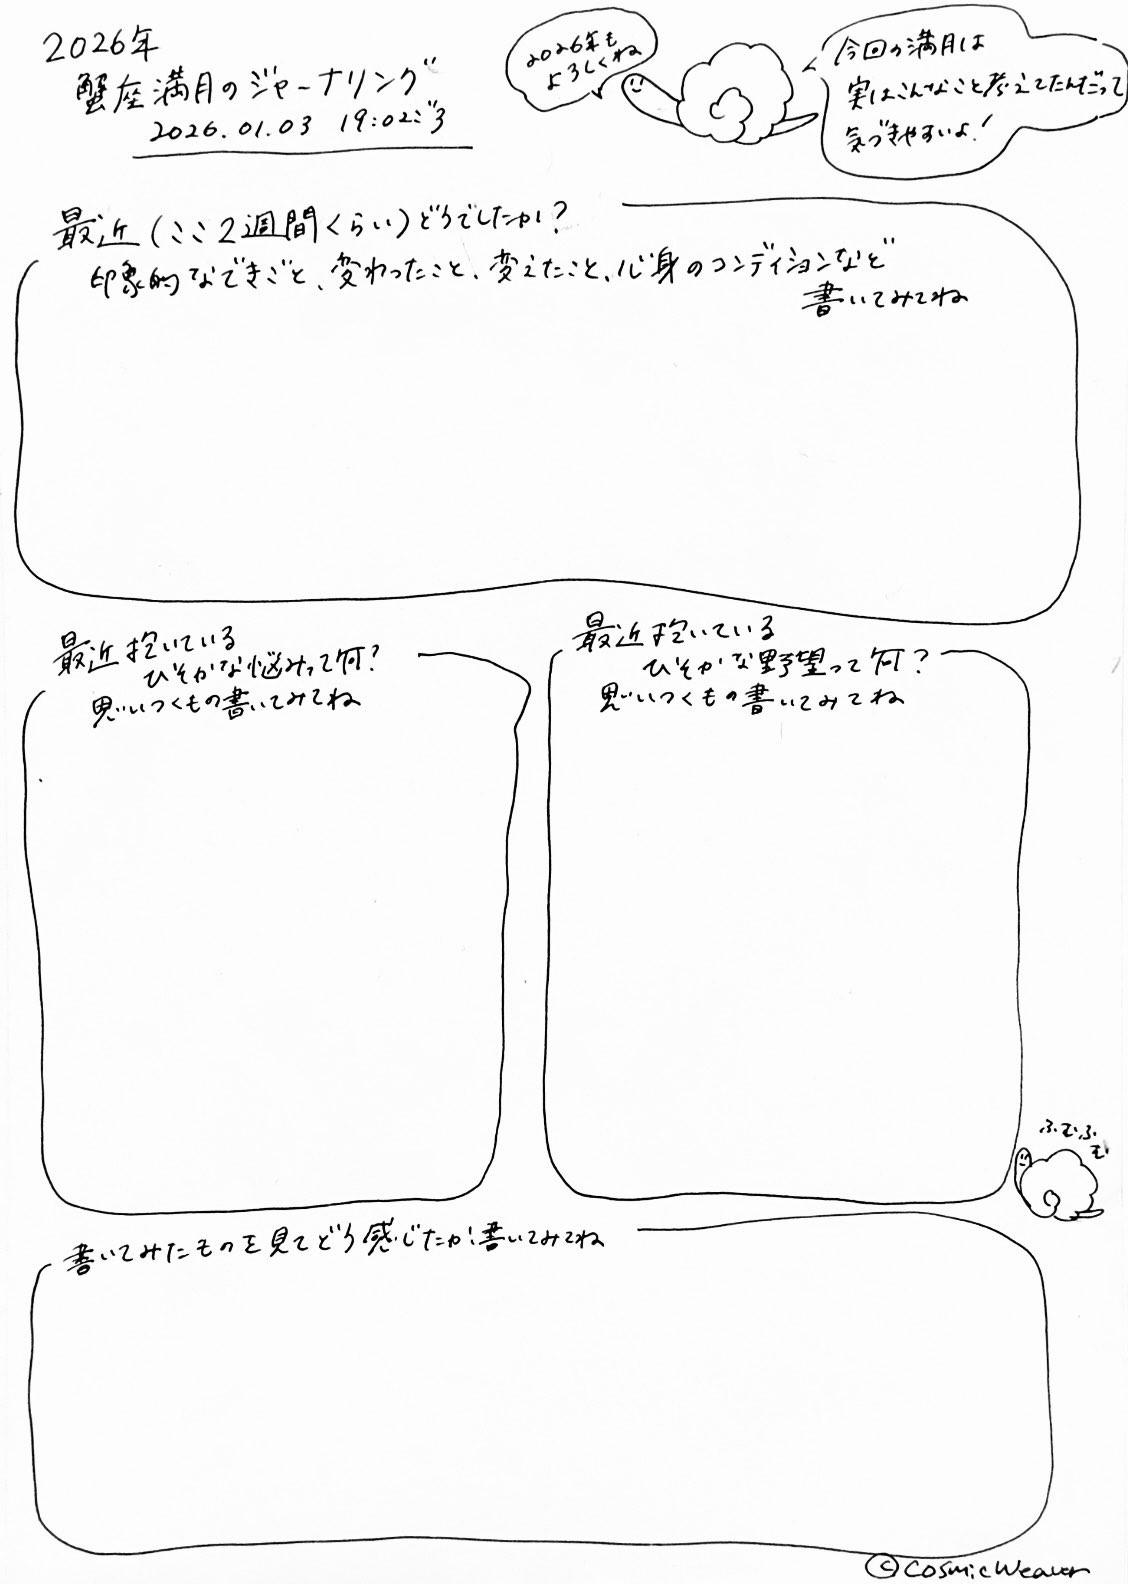 2026年
蟹座満月のジャーナリング
2026.01.03 19:02ごろ
2026年も
よろしくね
今回の満月は
実はこんなこと考えてたんだって
気づきやすいよ!
最近(ここ2週間くらい)どうでしたか?
印象的なできごと、変わったこと、変えたこと、心身のコンディションなど
書いてみてね
最近抱いている
ひそかな悩みって何?
思いつくもの書いてみてね
最近抱いている
ひそかな野望って何?
思いつくもの書いてみてね
ふむふ
む
書いてみたものを見てどう感じたか書いてみてね
©CosmicWeaver